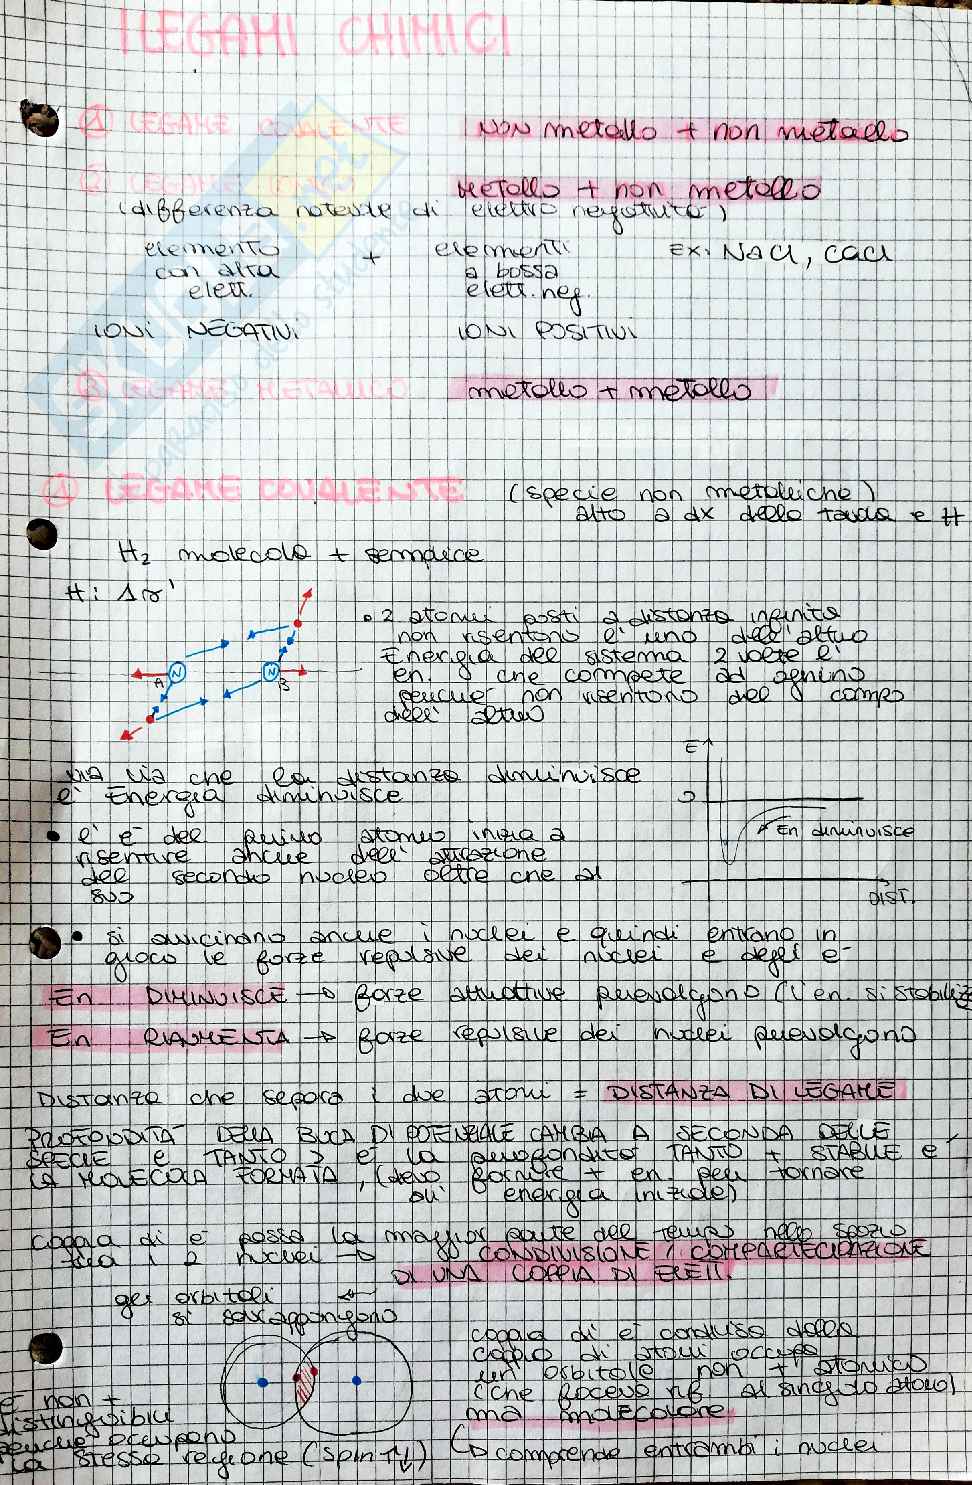 I LEGAMI CHIMICI
① LEGAME COVALENTE NON metallo + non metallo
② LEGAME IONICO Metallo + non metallo
(differenza notevole di elettronegatività)
elemento + elementi EX: NaCl, CaCl
con alta a bassa
elett. elett. neg.
IONI NEGATIVI IONI POSITIVI
③ LEGAME METALLICO metallo + metallo
① LEGAME COVALENTE (specie non metalliche)
alto a dx della tavola e H
H₂ molecola + semplice
H: 1s¹
• 2 atomi posti a distanza infinita
non risentono l'uno dell'altro
Energia del sistema 2 volte l'
en. che compete ad ognuno
perché non risentono del campo
dell'altro
A N N B
via via che la distanza diminuisce
l'Energia diminuisce
E
0
En diminuisce
DIST.
• l'e⁻ del primo atomo inizia a
risentire anche dell'attrazione
del secondo nucleo oltre che al
suo
• si avvicinano anche i nuclei e quindi entrano in
gioco le forze repulsive dei nuclei e degli e⁻
En DIMINUISCE → forze attrattive prevalgono (l'en. si stabilizz
En RIAUMENTA → forze repulsive dei nuclei prevalgono
Distanza che separa i due atomi = DISTANZA DI LEGAME
PROFONDITÀ DELLA BUCA DI POTENZIALE CAMBIA A SECONDA DELLE
SPECIE e TANTO > è la profondità TANTO + STABILE è
LA MOLECOLA FORMATA, (devo fornire + en. per tornare
all' energia iniziale)
coppia di e⁻ passa la maggior parte del tempo nello spazio
tra i 2 nuclei → CONDIVISIONE / COMPARTECIPAZIONE
DI UNA COPPIA DI ELETT.
gli orbitali ←
si sovrappongono
coppia di e⁻ condivisa dalla
coppia di atomi occupa
un' orbitale non + atomico
(che faceva rif. al singolo atomo)
ma molecolare
↳ comprende entrambi i nuclei
e⁻ non +
distinguibili
perché occupano
la stessa regione (spin ↑↓)